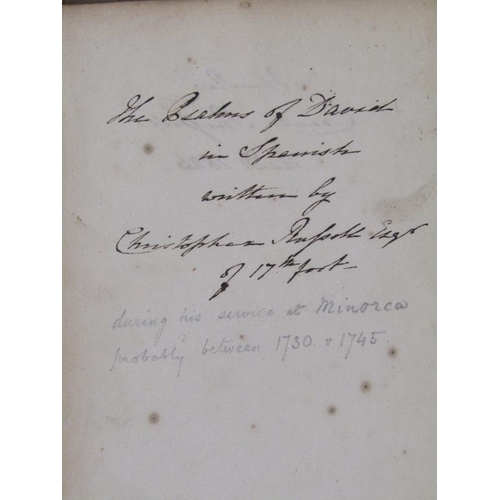 The Psalms of David
in Spanish
written by
Christopher Russell Esqr
of 17th foot
during his service at Minorca
probably between 1730 & 1745.